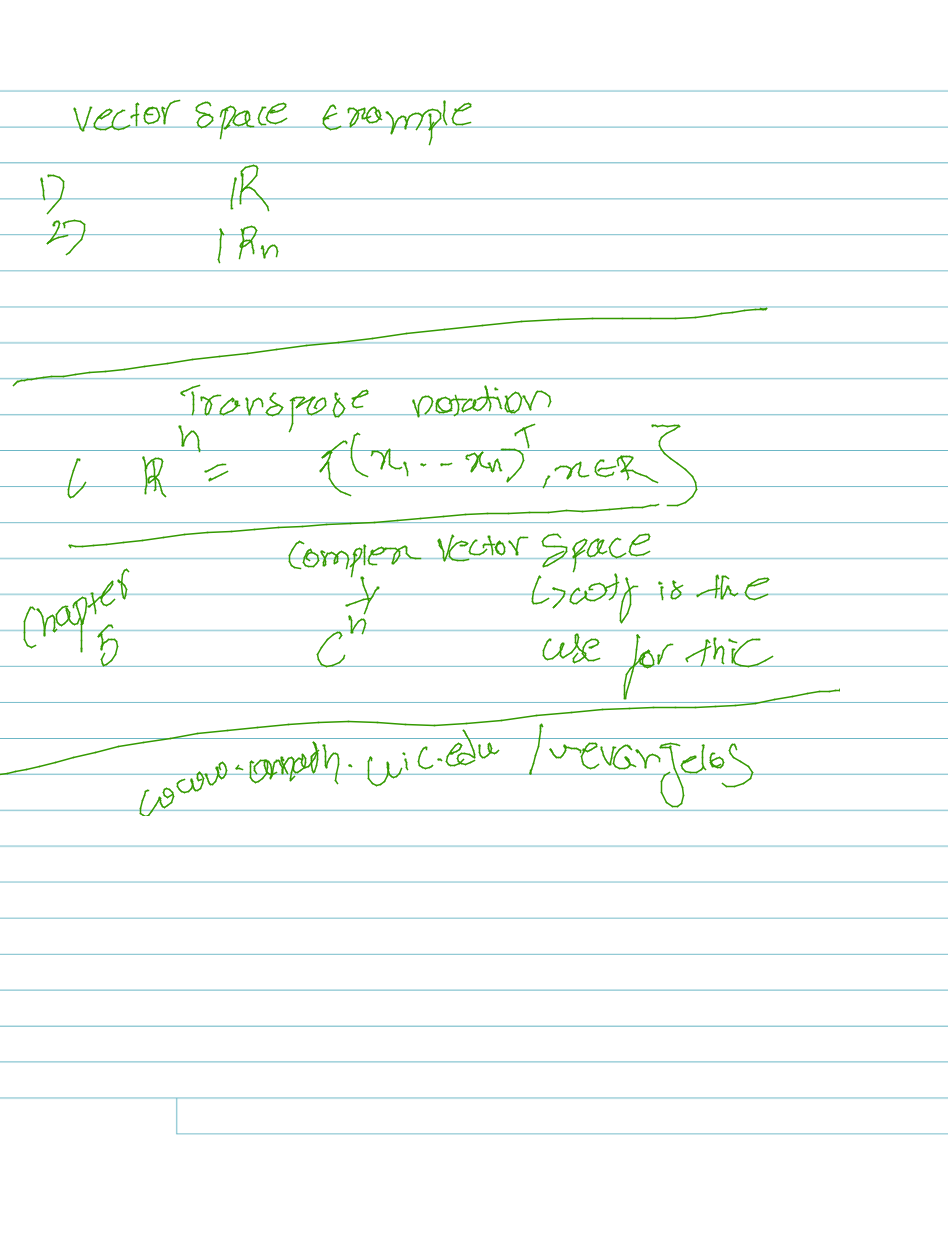 Vector Space Example
1) ℝ
2) ℝn
Transpose notation
( ℝⁿ = {(x₁ .. xn)ᵀ, x∈ℝ}
Complex Vector Space
Chapter 5
↓
Cⁿ
↳ is the
use for this
.uic.edu /